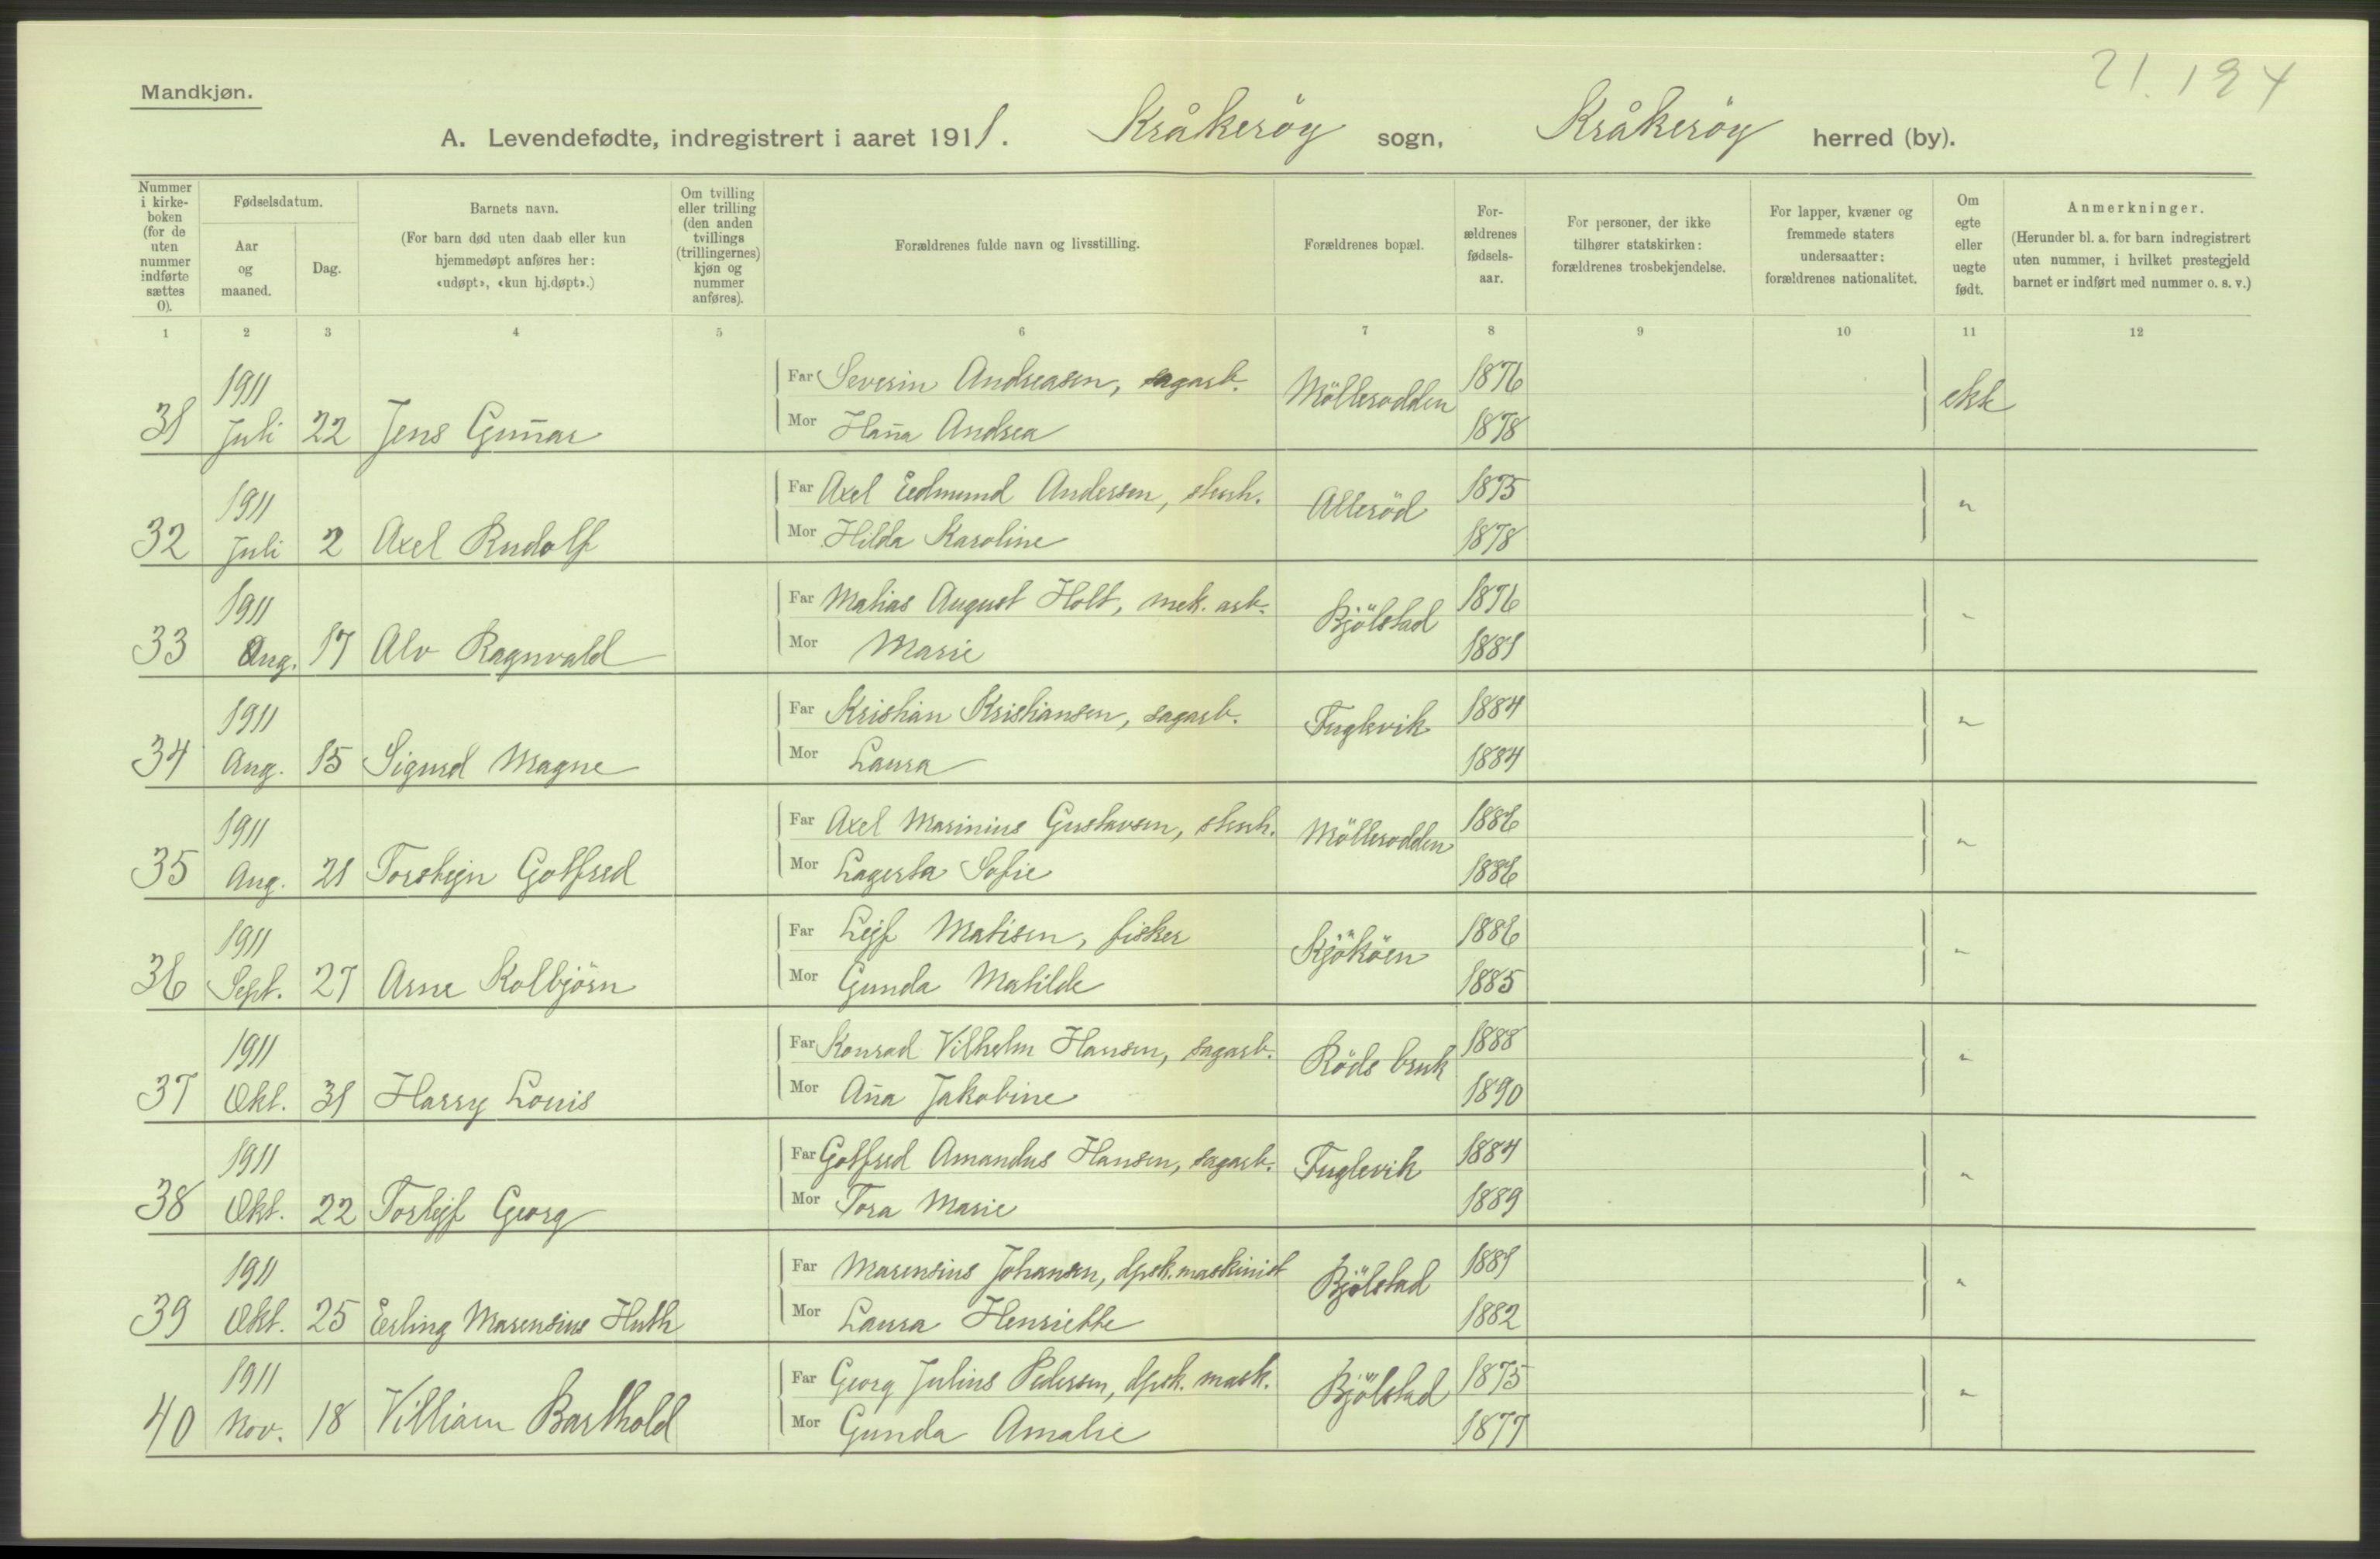 21.194
Mandkjøn.
A. Levendefødte, indregistrert i aaret 1911. Kråkeröy sogn, Kråkeröy herred (by).
Nummer i kirke- boken (for de uten nummer indførte sættes 0).
Fødselsdatum.
Aar og maaned.
Dag.
Barnets navn.
(For barn død uten daab eller kun hjemmedøpt anføres her: «udøpt», «kun hj.døpt».)
Om tvilling eller trilling (den anden tvillings (trillingernes) kjøn og nummer anføres).
Forældrenes fulde navn og livsstilling.
Forældrenes bopæl.
For- ældrenes fødsels- aar.
For personer, der ikke tilhører statskirken: forældrenes trosbekjendelse.
For lapper, kvæner og fremmede staters undersaatter: forældrenes nationalitet.
Om egte eller uegte født.
Anmerkninger.
(Herunder bl. a. for barn indregistrert uten nummer, i hvilket prestegjeld barnet er indført med nummer o. s. v.)
1 2 3 4 5 6 7 8 9 10 11 12
1911 Far Severin Andreasen, sagarb. Möllerodden 1876 ekte
31 Juli 22 Jens Gun̄ar Mor Han̄a Andrea 1878
1911 Far Axel Edmund Andersen, stenh. Alleröd 1875 "
32 Juli 2 Axel Rudolf Mor Hilda Karoline 1878
1911 Far Matias August Holt, mek. arb. Bjölstad 1876 "
33 Aug. 17 Alv Ragnvald Mor Marie 1881
1911 Far Kristian Kristiansen, sagarb. Fuglevik 1884 "
34 Aug. 15 Sigurd Magne Mor Laura 1884
1911 Far Axel Marinius Gustavsen, stenh. Möllerodden 1886 "
35 Aug. 21 Torstejn Gotfred Mor Lagerta Sofie 1886
1911 Far Lejf Matisen, fisker Kjököen 1886 "
36 Sept. 27 Arne Kolbjörn Mor Gunda Matilde 1885
1911 Far Konrad Vilhelm Hansen, sagarb. Röds bruk 1888 "
37 Okt. 31 Harry Louis Mor An̄a Jakobine 1890
1911 Far Gotfred Amandus Hansen, sagarb. Fuglevik 1884 "
38 Okt. 22 Torlejf Georg Mor Tora Marie 1889
1911 Far Marensius Johansen, dpsk. maskinist Bjölstad 1881 "
39 Okt. 25 Erling Marensius Huth Mor Laura Henriette 1882
1911 Far Georg Julius Pedersen, dpsk. mask. Bjölstad 1875 "
40 Nov. 18 Villiam Barthold Mor Gunda Amalie 1877